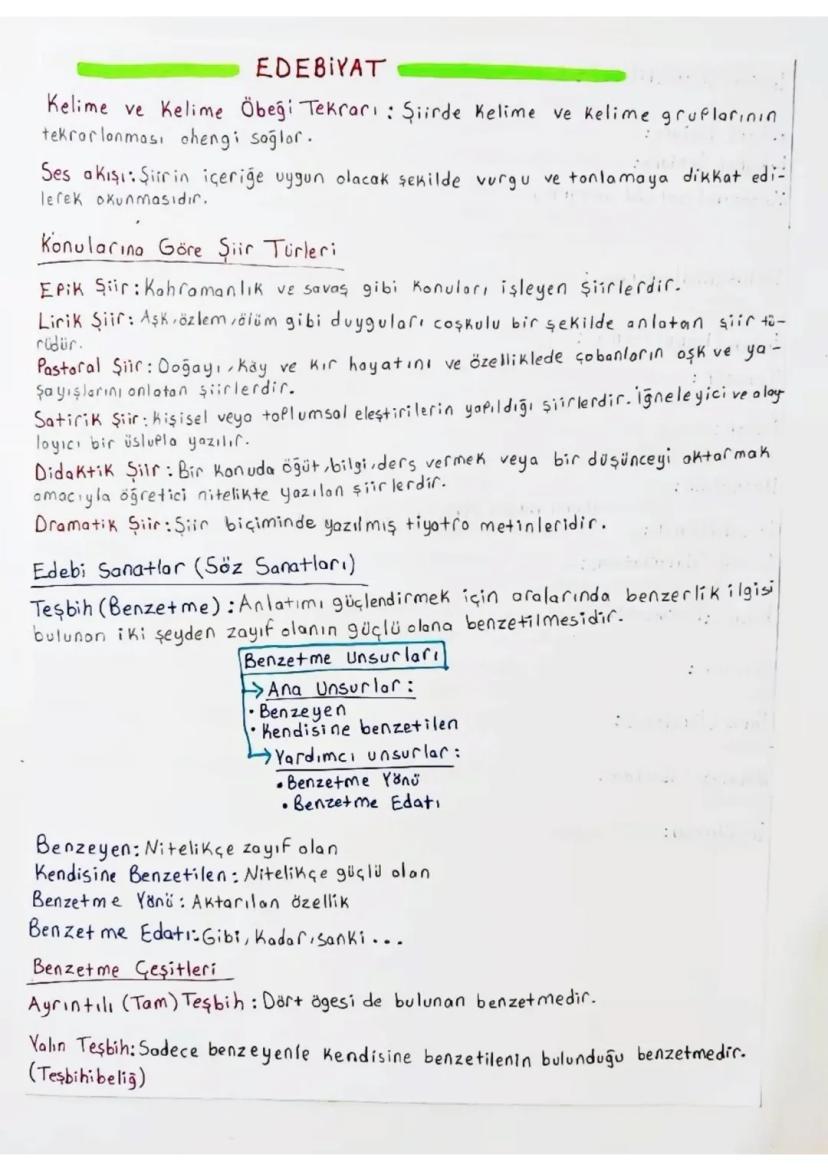 EDEBİYAT
Kelime ve Kelime Öbeği Tekrarı : Şiirde Kelime ve kelime gruplarının
tekrarlanması ahengi sağlar.
Ses akışı: Şiirin içeriğe uygun olacak şekilde vurgu ve tonlamaya dikkat edi-
lerek okunmasıdır.
Konularına Göre Şiir Türleri
Epik Şiir: Kahramanlık ve savaş gibi konuları işleyen şiirlerdir.
Lirik Şiir: Aşk, özlem, ölüm gibi duyguları coşkulu bir şekilde anlatan şiir tü-
rüdür.
Pastoral Şiir: Doğayı, köy ve kır hayatını ve özelliklede çobanların aşk ve ya-
şayışlarını anlatan şiirlerdir.
Satirik Şiir: Kişisel veya toplumsal eleştirilerin yapıldığı şiirlerdir. İğneleyici ve alay
layıcı bir üslupla yazılır.
Didaktik Şiir: Bir konuda öğüt, bilgi, ders vermek veya bir düşünceyi aktarmak
amacıyla öğretici nitelikte yazılan şiirlerdir.
Dramatik Şiir: Şiir biçiminde yazılmış tiyatro metinleridir.
Edebi Sanatlar (Söz Sanatları)
Teşbih (Benzetme) : Anlatımı güçlendirmek için aralarında benzerlik ilgisi
bulunan iki şeyden zayıf olanın güçlü olana benzetilmesidir.
Benzetme Unsurları
→ Ana Unsurlar :
• Benzeyen
• Kendisine benzetilen
→ Yardımcı unsurlar :
• Benzetme Yönü
• Benzetme Edatı
Benzeyen: Nitelikçe zayıf olan
Kendisine Benzetilen: Nitelikçe güçlü olan
Benzetme Yönü: Aktarılan özellik
Benzetme Edatı: Gibi, Kadar, sanki ...
Benzetme Çeşitleri
Ayrıntılı (Tam) Teşbih : Dört ögesi de bulunan benzetmedir.
Yalın Teşbih: Sadece benzeyenle kendisine benzetilenin bulunduğu benzetmedir.
(Teşbihibeliğ)